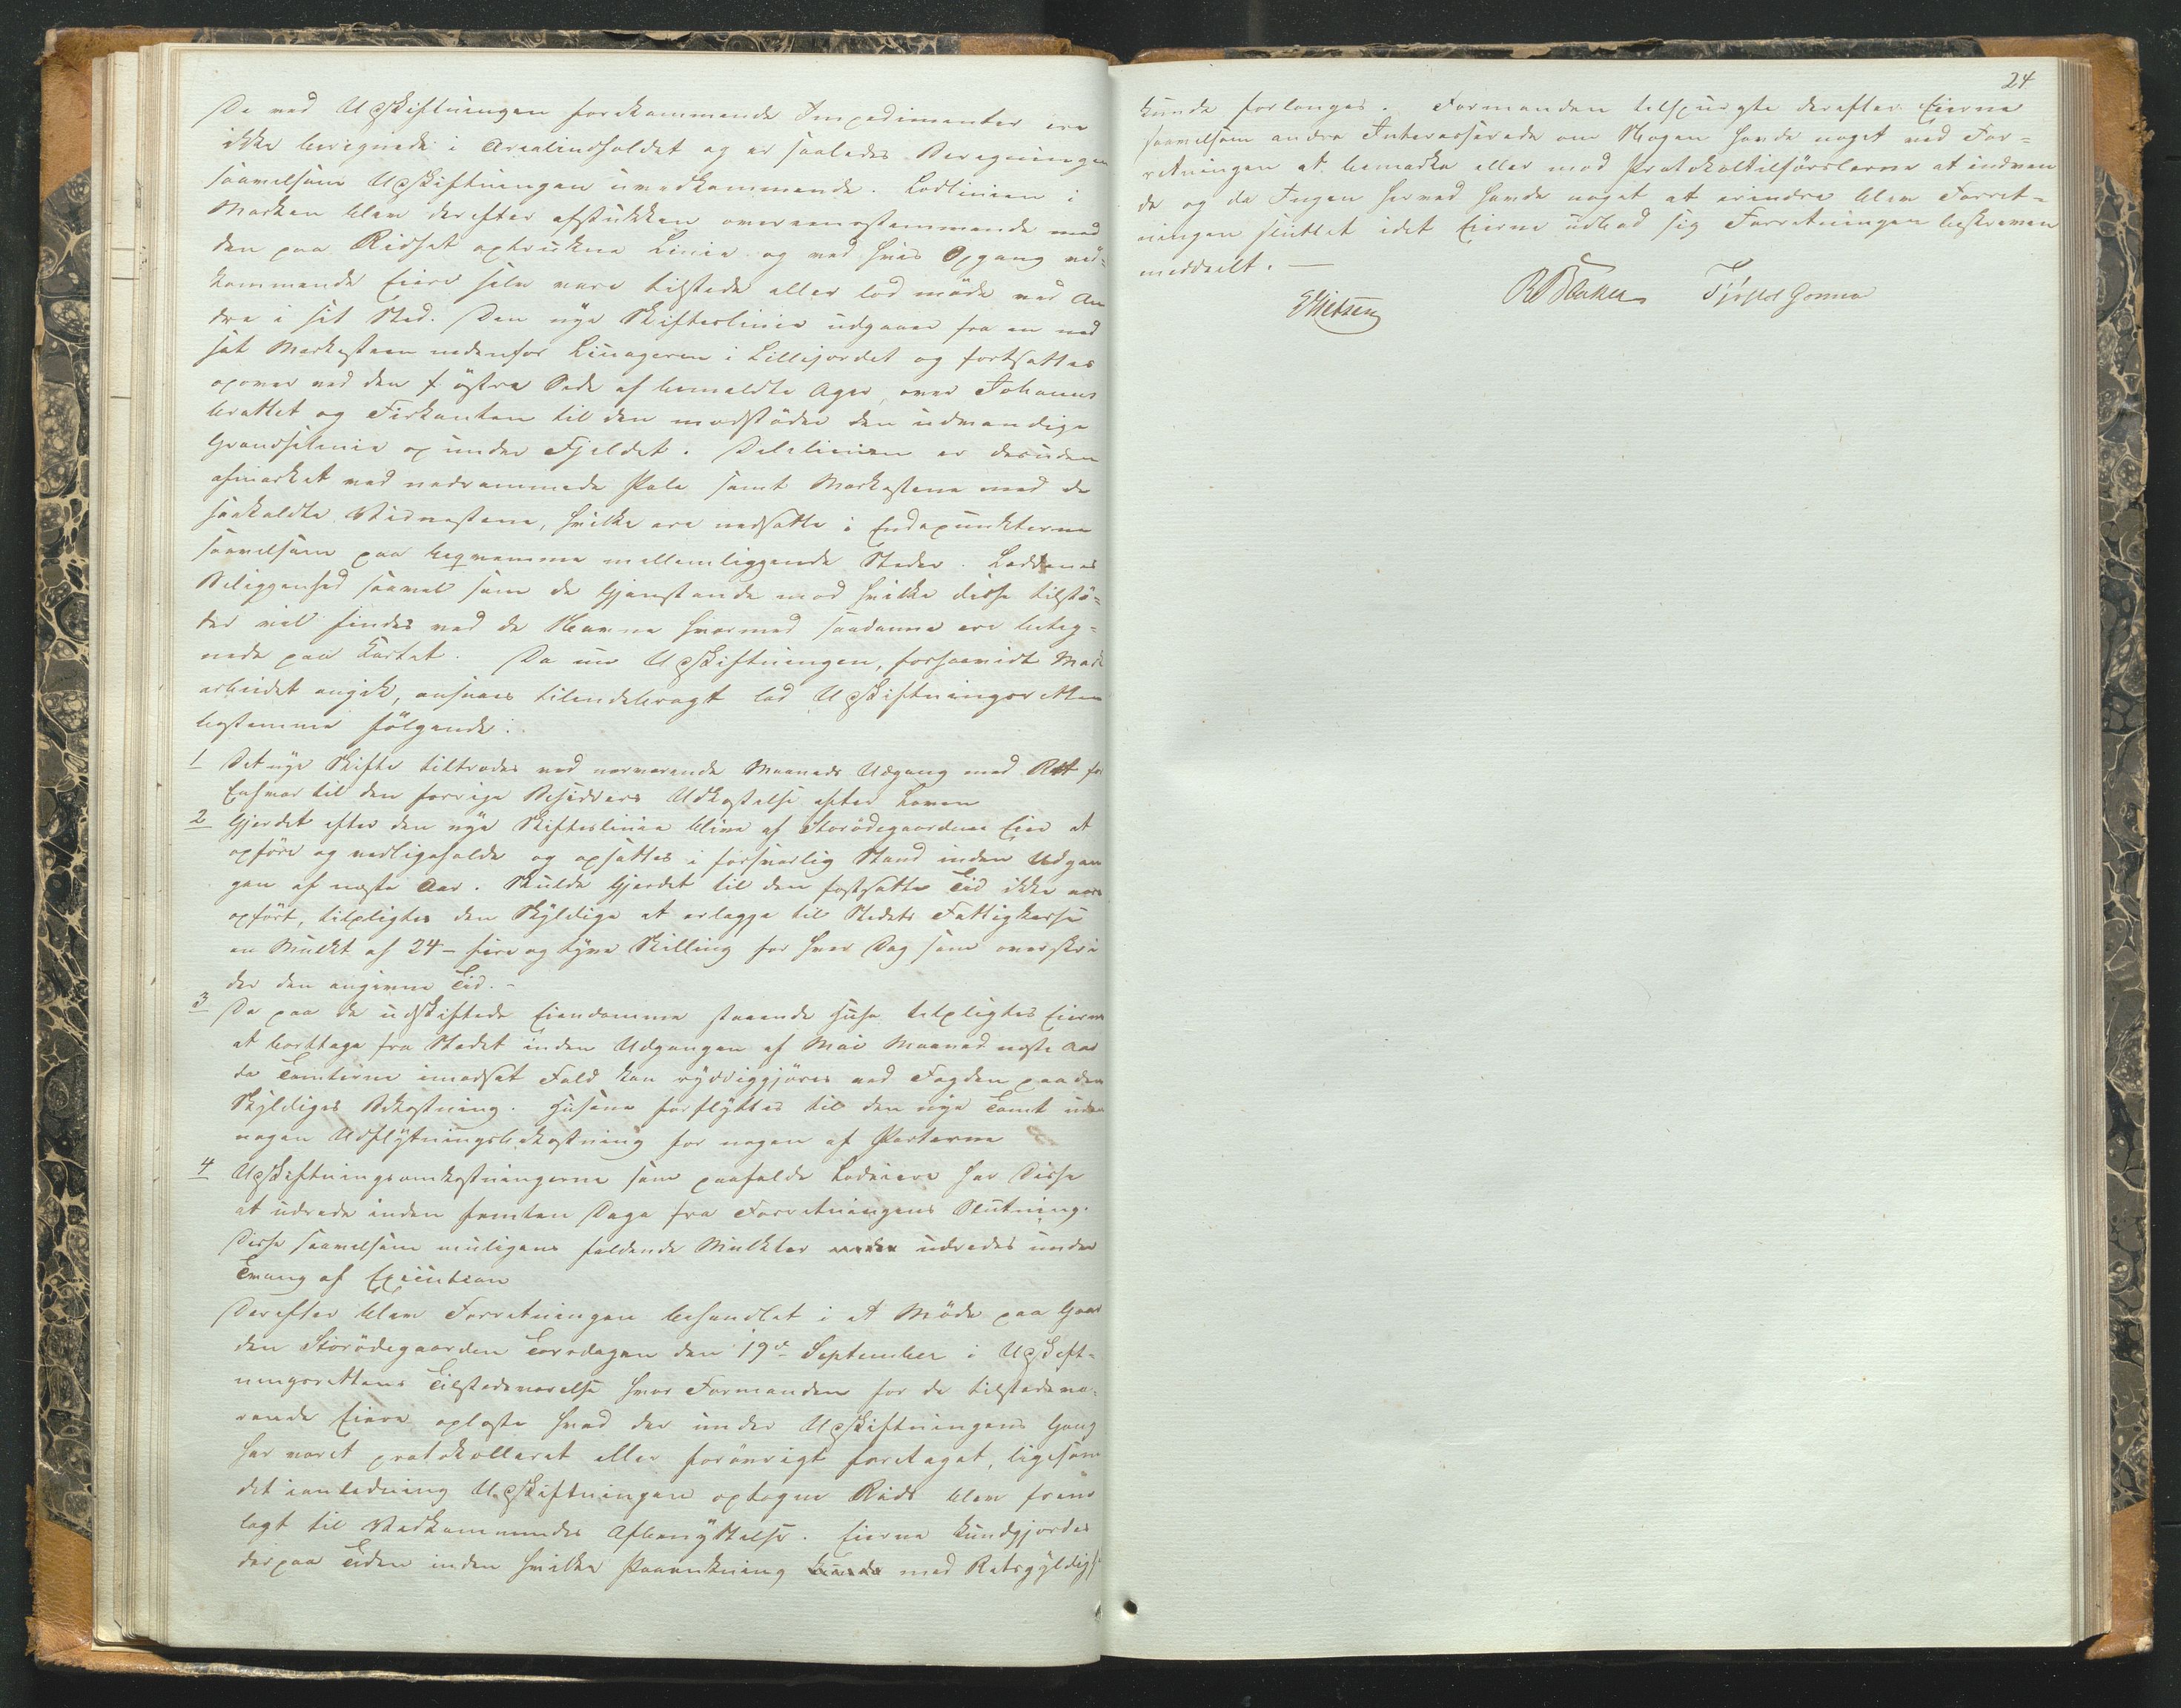 De ved Udskiftningen forekommende Impedimenter ere
ikke beregnede i Arealindholdet og er saaledes Beregningen
saavelsom Udskiftningen uvedkommende. Lodlinien i
Marken blev derefter afstukken overeensstemmende med
den paa Ridset optrukne Linie og ved hvis Opgang ved=
kommende Eiere selv vare tilstede eller lod møde ved An
dre i sit Sted. Den nye Skifteslinie udgaaer fra en ned
sat Markesteen nedenfor Linageren i Lillejordet og fortsættes
opover ved den f østre Side af bemeldte Ager, over Johannes
brattet og Firkanten til den modstøder den udvendige
Grændselinie op under Fjeldet. Delelinien er desuden
afmærket ved nedrammede Pæle samt Markestene med de
saakaldte Vidnestene, hvilke ere nedsatte i Endepunkterne
saavelsom paa beqvemme mellemliggende Steder. Loddenes
Beliggenhed saavel som de Gjenstande mod hvilke disse tilstø=
der vil findes ved de Navne hvormed saadanne ere beteg=
nede paa Kartet. Da nu Udskiftningen, forsaavidt Mark
arbeidet angik, ansaaes tilendebragt lod Udskiftningsretten
bestemme følgende:
1 Det nye Skifte tiltrædes ved nærværende Maaneds Udgang med Ret for
Enhver til den forrige Besidders Udkastelse efter Loven
2 Gjerdet efter den nye Skifteslinie bliver af Storødegaardens Eier at
opføre og vedligeholde og opsættes i forsvarlig Stand inden Udgan
gen af næste Aar. Skulde Gjerdet til den fastsatte Tid ikke være
opført, tilpligtes den Skyldige at erlægge til Stedets Fattigkasse
en Mulkt af 24 - fire og tyve Skilling for hver Dag som overskri
der den angivne Tid. -
3 De paa de udskiftede Eiendomme staaende Huse tilpligtes Eierne
at borttage fra Stedet inden Udgangen af Mai Maaned næste Aar
da Tomterne imodsat Fald kan ryddiggjøres ved Fogden paa den
Skyldiges Bekostning. Husene forflyttes til den nye Tomt uden
nogen Udflytningsbekostning for nogen af Parterne
4 Udskiftningsomkostningerne som paafalde Lodeiere har Disse
at udrede inden femten Dage fra Forretningens Slutning.
Disse saavelsom muligens faldende Mulkter udredes under
Tvang af Execution
Derefter blev Forretningen behandlet i et Møde paa Gaar
den Storødegaarden Torsdagen den 19de September i Udskift=
ningsrettens Tilstedeværelse hvor Formanden for de tilstedevæ=
rende Eiere oplæste hvad der under Udskiftningens Gang
har været protokolleret eller forøvrigt foretaget, ligesom
det ianledning Udskiftningen optagne Rids blev frem
lagt til Vedkommendes Afbenyttelse. Eierne kundgjordes
derpaa Tiden inden hvilken Paaankning kunde med Retsgyldigh
24
kunde forlanges. Formanden tilspurgte derefter Eierne
saavelsom andre Interesserede om Nogen havde noget ved For=
retningen at bemærke eller mod Protokoltilførslerne at indven
de og da Ingen herved havde noget at erindre blev Forret=
ningen sluttet idet Eierne udbad sig Forretningen beskreven
meddeelt. —